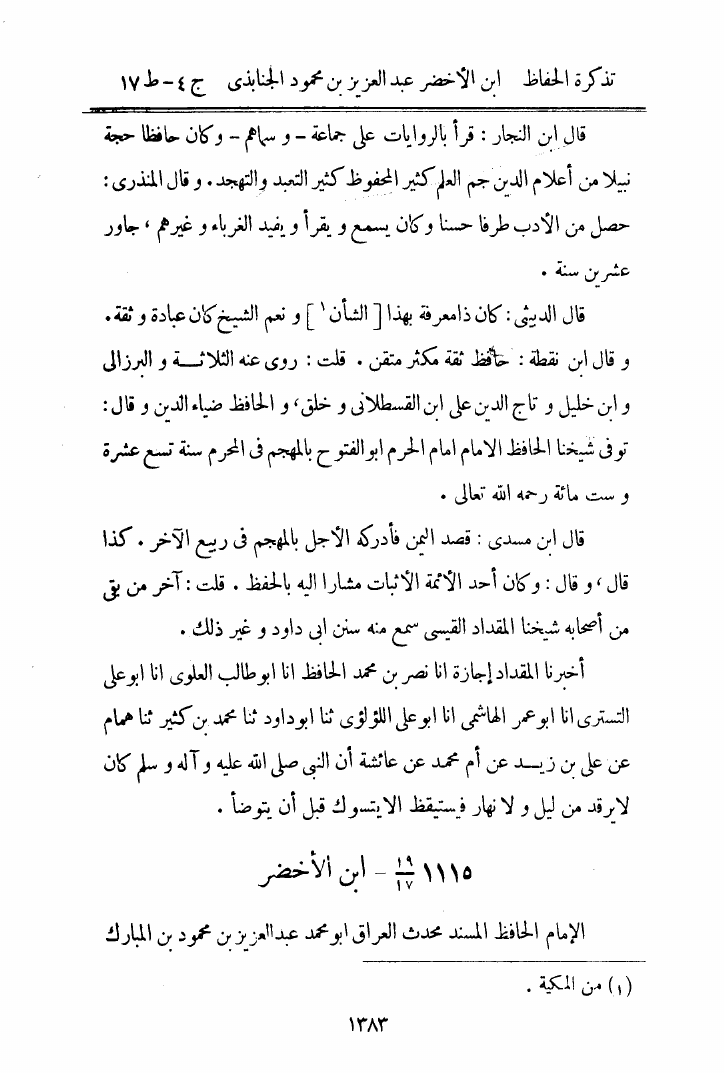 تذكرة الحفاظ ابن الأخضر عبد العزيز بن محمود الجنابذى ج ٤ - ط ١٧
قال ابن النجار : قرأ بالروايات على جماعة - و سماهم - وكان حافظا حجة
نبيلا من أعلام الدين جم العلم كثير المحفوظ كثير التعبد والتهجد . و قال المنذرى :
حصل من الأدب طرفا حسنا وكان يسمع و يقرأ و يفيد الغرباء و غيرهم ، جاور
عشرين سنة .
قال الدبيثى : كان ذا معرفة بهذا [ الشأن ١ ] و نعم الشيخ كان عبادة و ثقة .
و قال ابن نقطة : حافظ ثقة مكثر متقن . قلت : روى عنه الثلاثة و البرزالى
و ابن خليل و تاج الدين على ابن القسطلانى و خلق ، و الحافظ ضياء الدين و قال :
توفى شيخنا الحافظ الامام امام الحرم ابو الفتوح بالمهجم فى المحرم سنة تسع عشرة
و ست مائة رحمه الله تعالى .
قال ابن مسدى : قصد اليمن فأدركه الأجل بالمهجم فى ربيع الآخر . كذا
قال ، و قال : وكان أحد الأئمة الأثبات مشارا اليه بالحفظ . قلت : آخر من بقى
من أصحابه شيخنا المقداد القيسى سمع منه سنن ابى داود و غير ذلك .
أخبرنا المقداد إجازة انا نصر بن محمد الحافظ انا ابو طالب العلوى انا ابو على
التسترى انا ابو عمر الهاشمى انا ابو على اللؤلؤى ثنا ابو داود ثنا محمد بن كثير ثنا همام
عن على بن زيد عن أم محمد عن عائشة أن النبى صلى الله عليه و آله و سلم كان
لا يرقد من ليل و لا نهار فيستيقظ الا يتسوك قبل أن يتوضأ .
١١١٥ ١٩/١٧ - ابن الأخضر
الإمام الحافظ المسند محدث العراق ابو محمد عبد العزيز بن محمود بن المبارك
(١) من المكية .
١٣٨٣